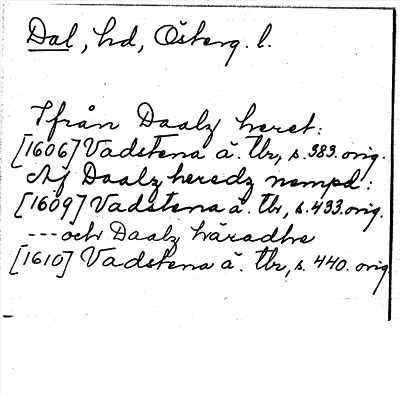 Dal, hd, Österg. l.
Ifrån Daalz heret:
[1606] Vadstena ä. tbr, s. 383. orig.
Af Daalz heredz nempd:
[1609] Vadstena ä. tbr, s. 433. orig.
--- och Daalz häradhe
[1610] Vadstena ä. tbr, s. 440. orig.